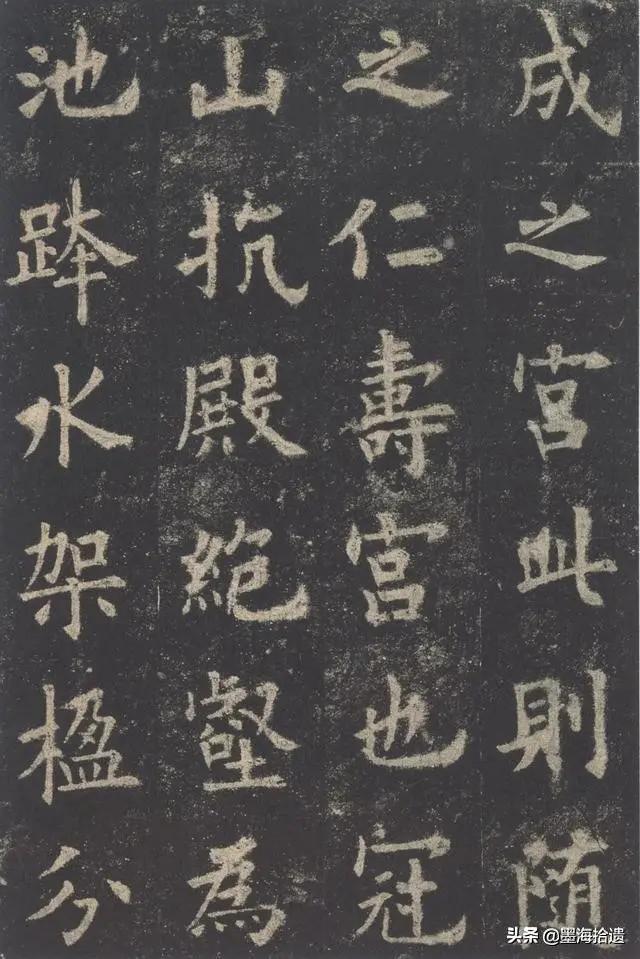 成之宮此則随
之仁壽宮也冠
山抗殿絶壑為
池跨水架楹分
头条 @墨海拾遗